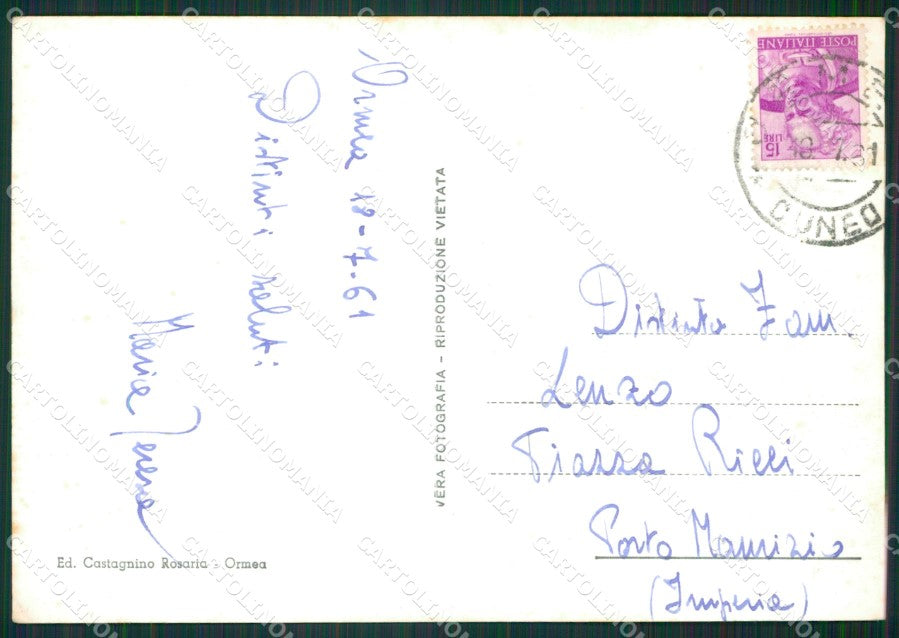 Ormea 18-7-61
Distinti saluti
Maria
VERA FOTOGRAFIA - RIPRODUZIONE VIETATA
Ed. Castagnino Rosaria - Ormea
POSTE ITALIANE
15 LIRE
CUNEO
Distinta Fam.
Lenzo
Piazza Ricci
Porto Maurizio
(Imperia)
CARTOLINOMANIA